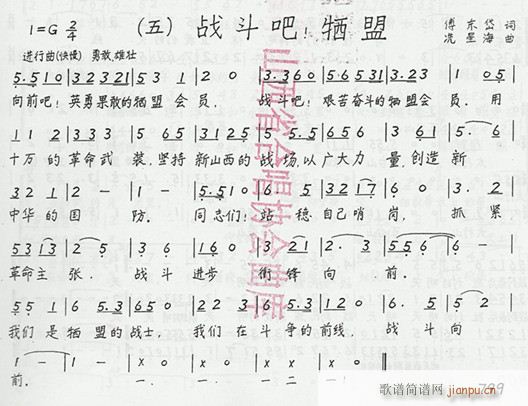 1=G 2/4 (五) 战斗吧!牺盟 傅东岱 词
冼星海 曲
进行曲(快慢) 勇敢,雄壮
5.5 1 0 | 3 2 3 2 1 | 5 3 1 | 2 0 | 3.3 6 0 | 5 6 5 3 1 | 3.2 3 | 1 0 5 |
向前吧! 英勇果敢的牺盟会员. 战斗吧! 艰苦奋斗的牺盟会员. 用
1 1 2 | 3 3 3 | 5 6 5 | 5 1
十万的革命武装,坚持新山西的战场,以广大力量,创造新
3 2 1 | 2 - | 1 - | 5.5 1 0 | 6. 5 | 3 2 1 7 | 6 0 | 3. 2 |
中华的国防. 同志们! 站稳自己哨岗, 抓紧
5 3 1 3 | 2 5 | 3 6 | 1 6 0 | 3 2 1 | 2. 3 | 5 5 6 | 6 - |
革命主张. 战斗进步衝锋向前.
5 5 1 | 6 5.3 | 6 5 0 | 2 2 3 | 6 5.3 | 1 2 0 | 6. 5 | 5 2 |
我们是牺盟的战士, 我们在斗争的前线, 战斗向
1 - | 1 - | x 0 | x 0 | x x | x 0 ‖
前. 一. 一. 一 二 一!
山西省合唱协会曲库
歌谱简谱网
jianpu.cn
799